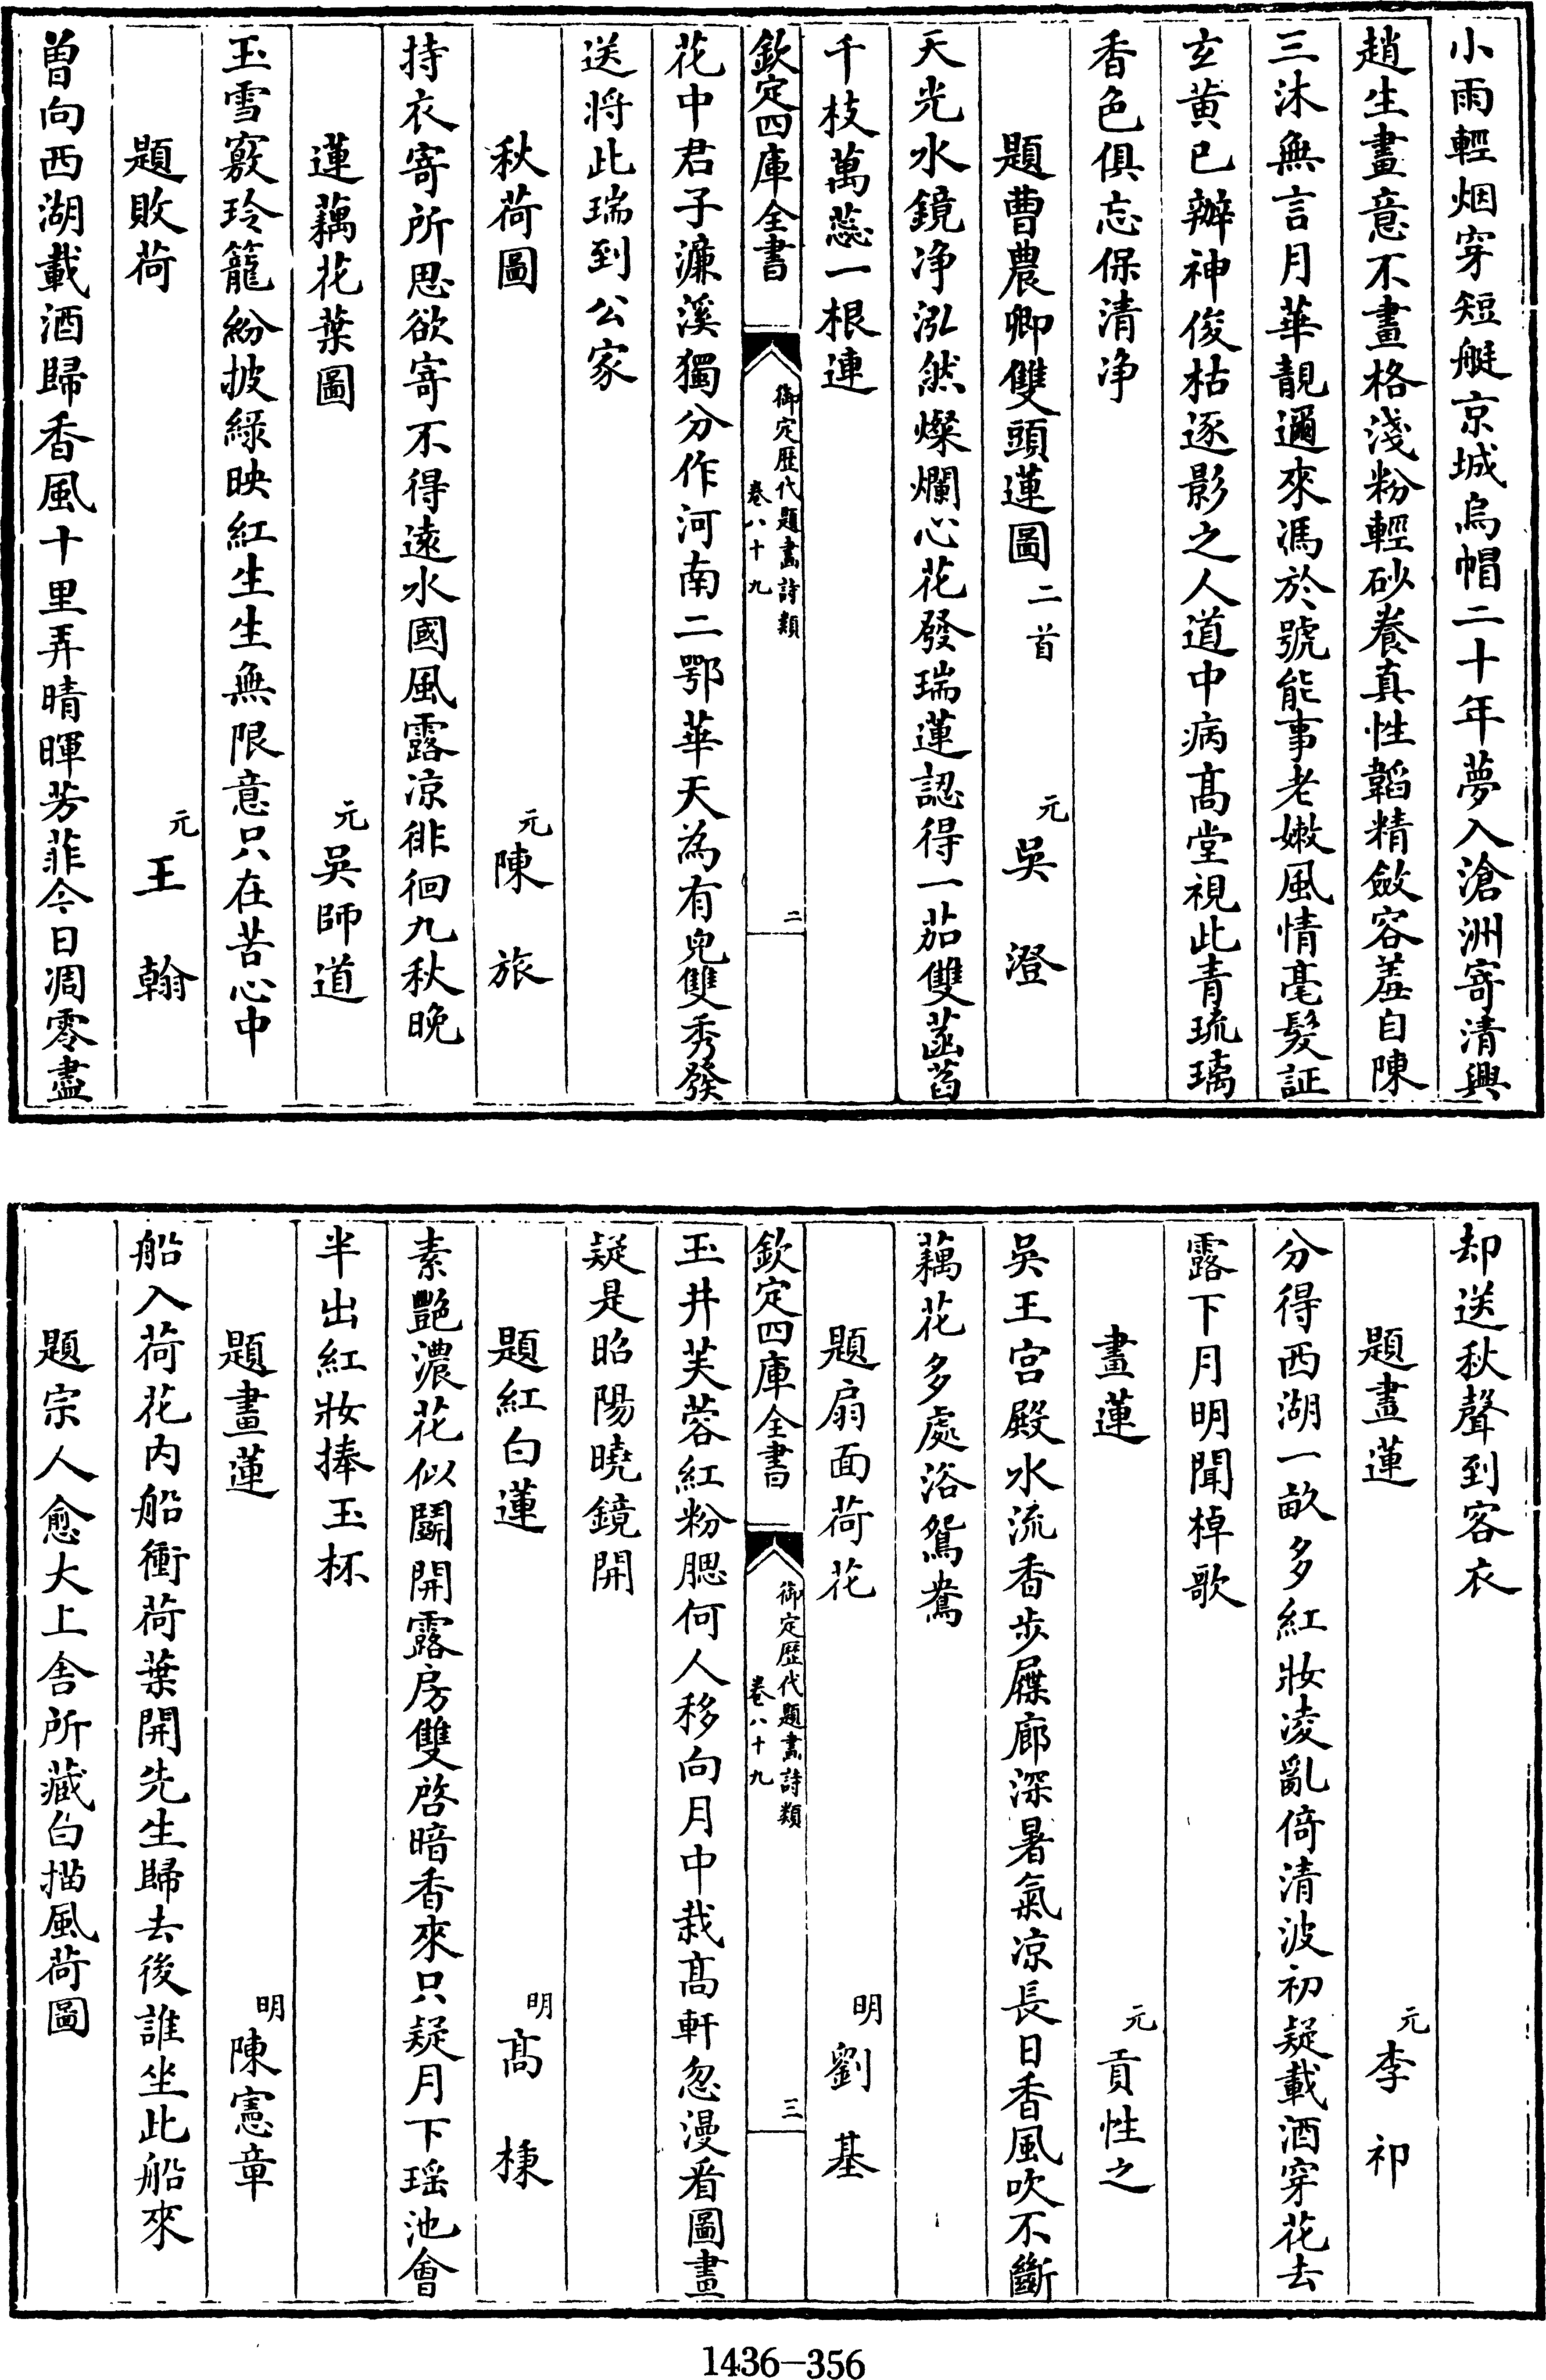 小雨輕烟穿短艇京城烏帽二十年夢入滄洲寄清興
趙生畫意不畫格淺粉輕砂養真性韜精斂容羞自陳
三沐無言月華靚邇來馮於號能事老嫩風情毫髮証
玄黄已辦神俊枯逐影之人道中病髙堂視此青琉璃
香色俱忘保清净
題曹農卿雙頭蓮圖二首 元吳澄
天光水鏡净泓然燦爛心花發瑞蓮認得一茄雙菡萏
千枝萬蕊一根連
欽定四庫全書 御定歷代題畫詩類 卷八十九 二
花中君子濂溪獨分作河南二鄂華天為有皃雙秀發
送將此瑞到公家
秋荷圖 元陳旅
持衣寄所思欲寄不得遠水國風露凉徘徊九秋晚
蓮藕花葉圖 元吳師道
玉雪竅玲籠紛披綠映紅生生無限意只在苦心中
題敗荷 元王翰
曽向西湖載酒歸香風十里弄晴暉芳菲今日凋零盡
却送秋聲到客衣
題畫蓮 元李祁
分得西湖一畝多紅妝凌亂倚清波初疑載酒穿花去
露下月明聞棹歌
畫蓮 元貢性之
吳王宫殿水流香步屧廊深暑氣凉長日香風吹不斷
藕花多處浴鴛鴦
題扇面荷花 明劉基
欽定四庫全書 御定歷代題畫詩類 卷八十九 三
玉井芙蓉紅粉腮何人移向月中栽髙軒忽漫看圖畫
疑是昭陽曉鏡開
題紅白蓮 明髙棅
素艷濃花似鬬開露房雙啓暗香來只疑月下瑶池會
半出紅妝捧玉杯
題畫蓮 明陳憲章
船入荷花内船衝荷葉開先生歸去後誰坐此船來
題宗人愈大上舎所藏白描風荷圖
1436-356